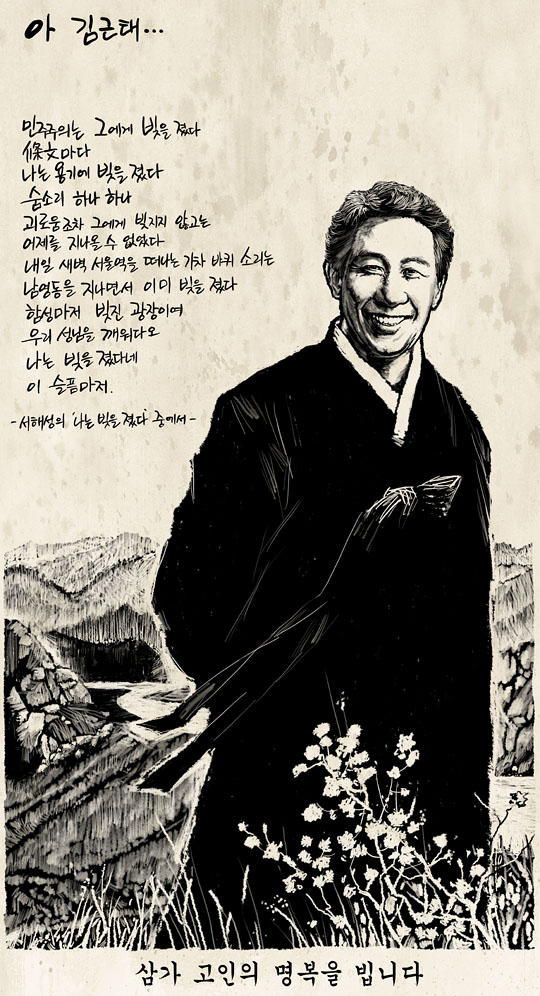 아 김근태...
민주주의는 그에게 빚을 졌다
條文마다
나는 용기에 빚을 졌다
숨소리 하나 하나
괴로움조차 그에게 빚지지 않고는
어제를 지나올 수 없었다
내일 새벽 서울역을 떠나는 기차 바퀴 소리는
남영동을 지나면서 이미 빚을 졌다
함성마저 빚진 광장이여
우리 선남을 깨워다오
나는 빚을 졌다네
이 슬픔마저.
-서해성의 '나는 빚을 졌다' 중에서-
삼가 고인의 명복을 빕니다